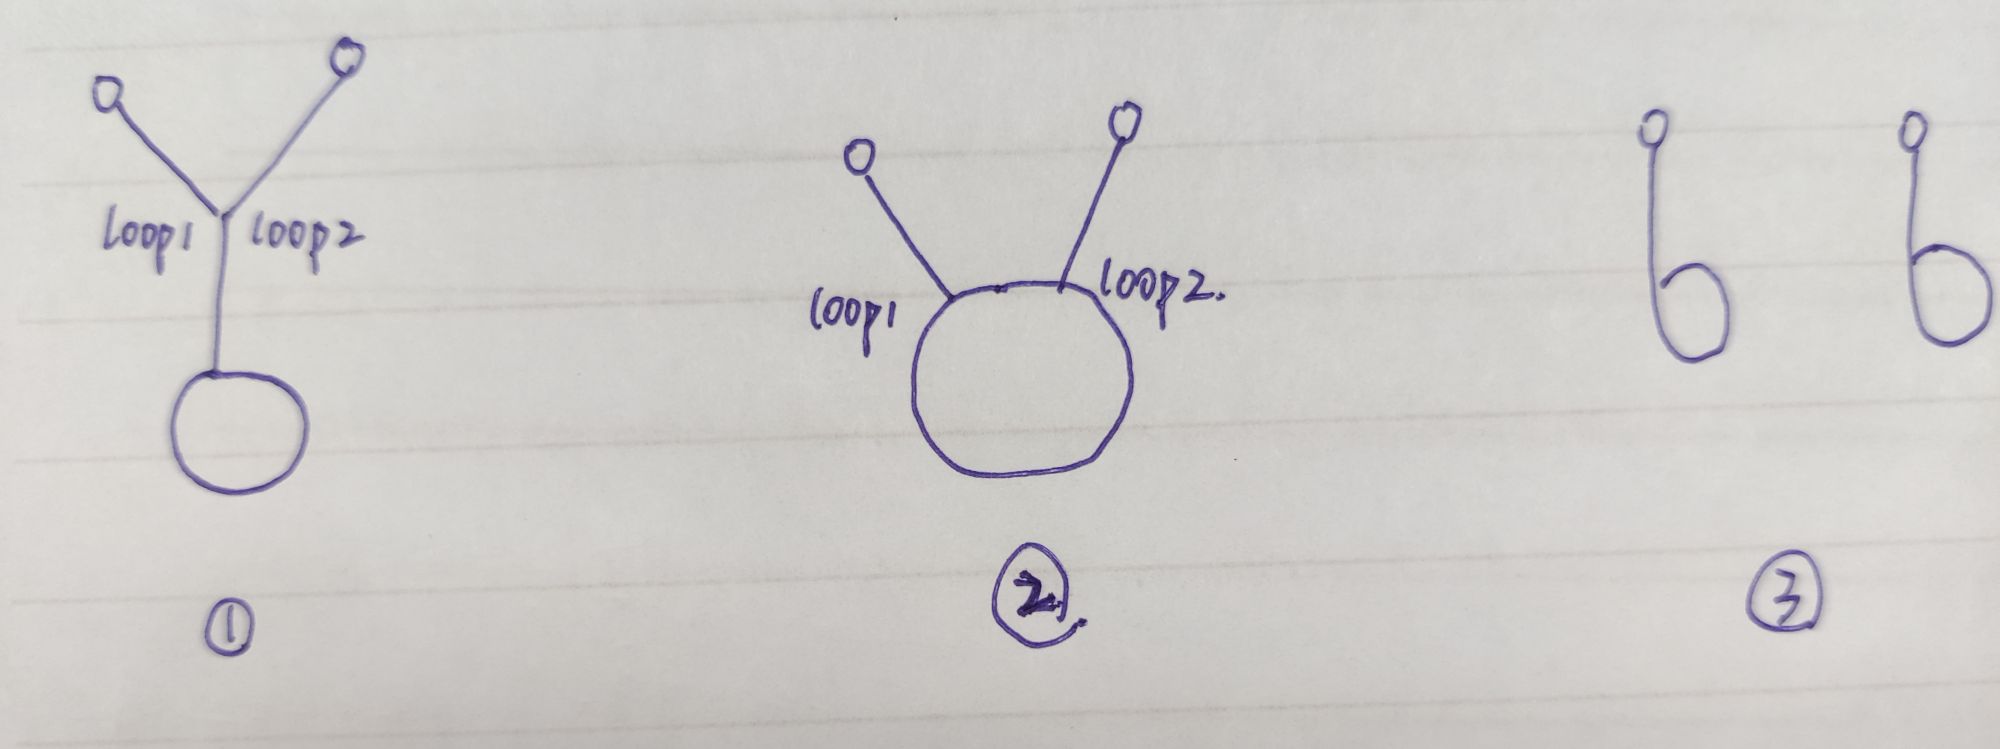 loop1 loop2
loop1 loop2.
① ② ③